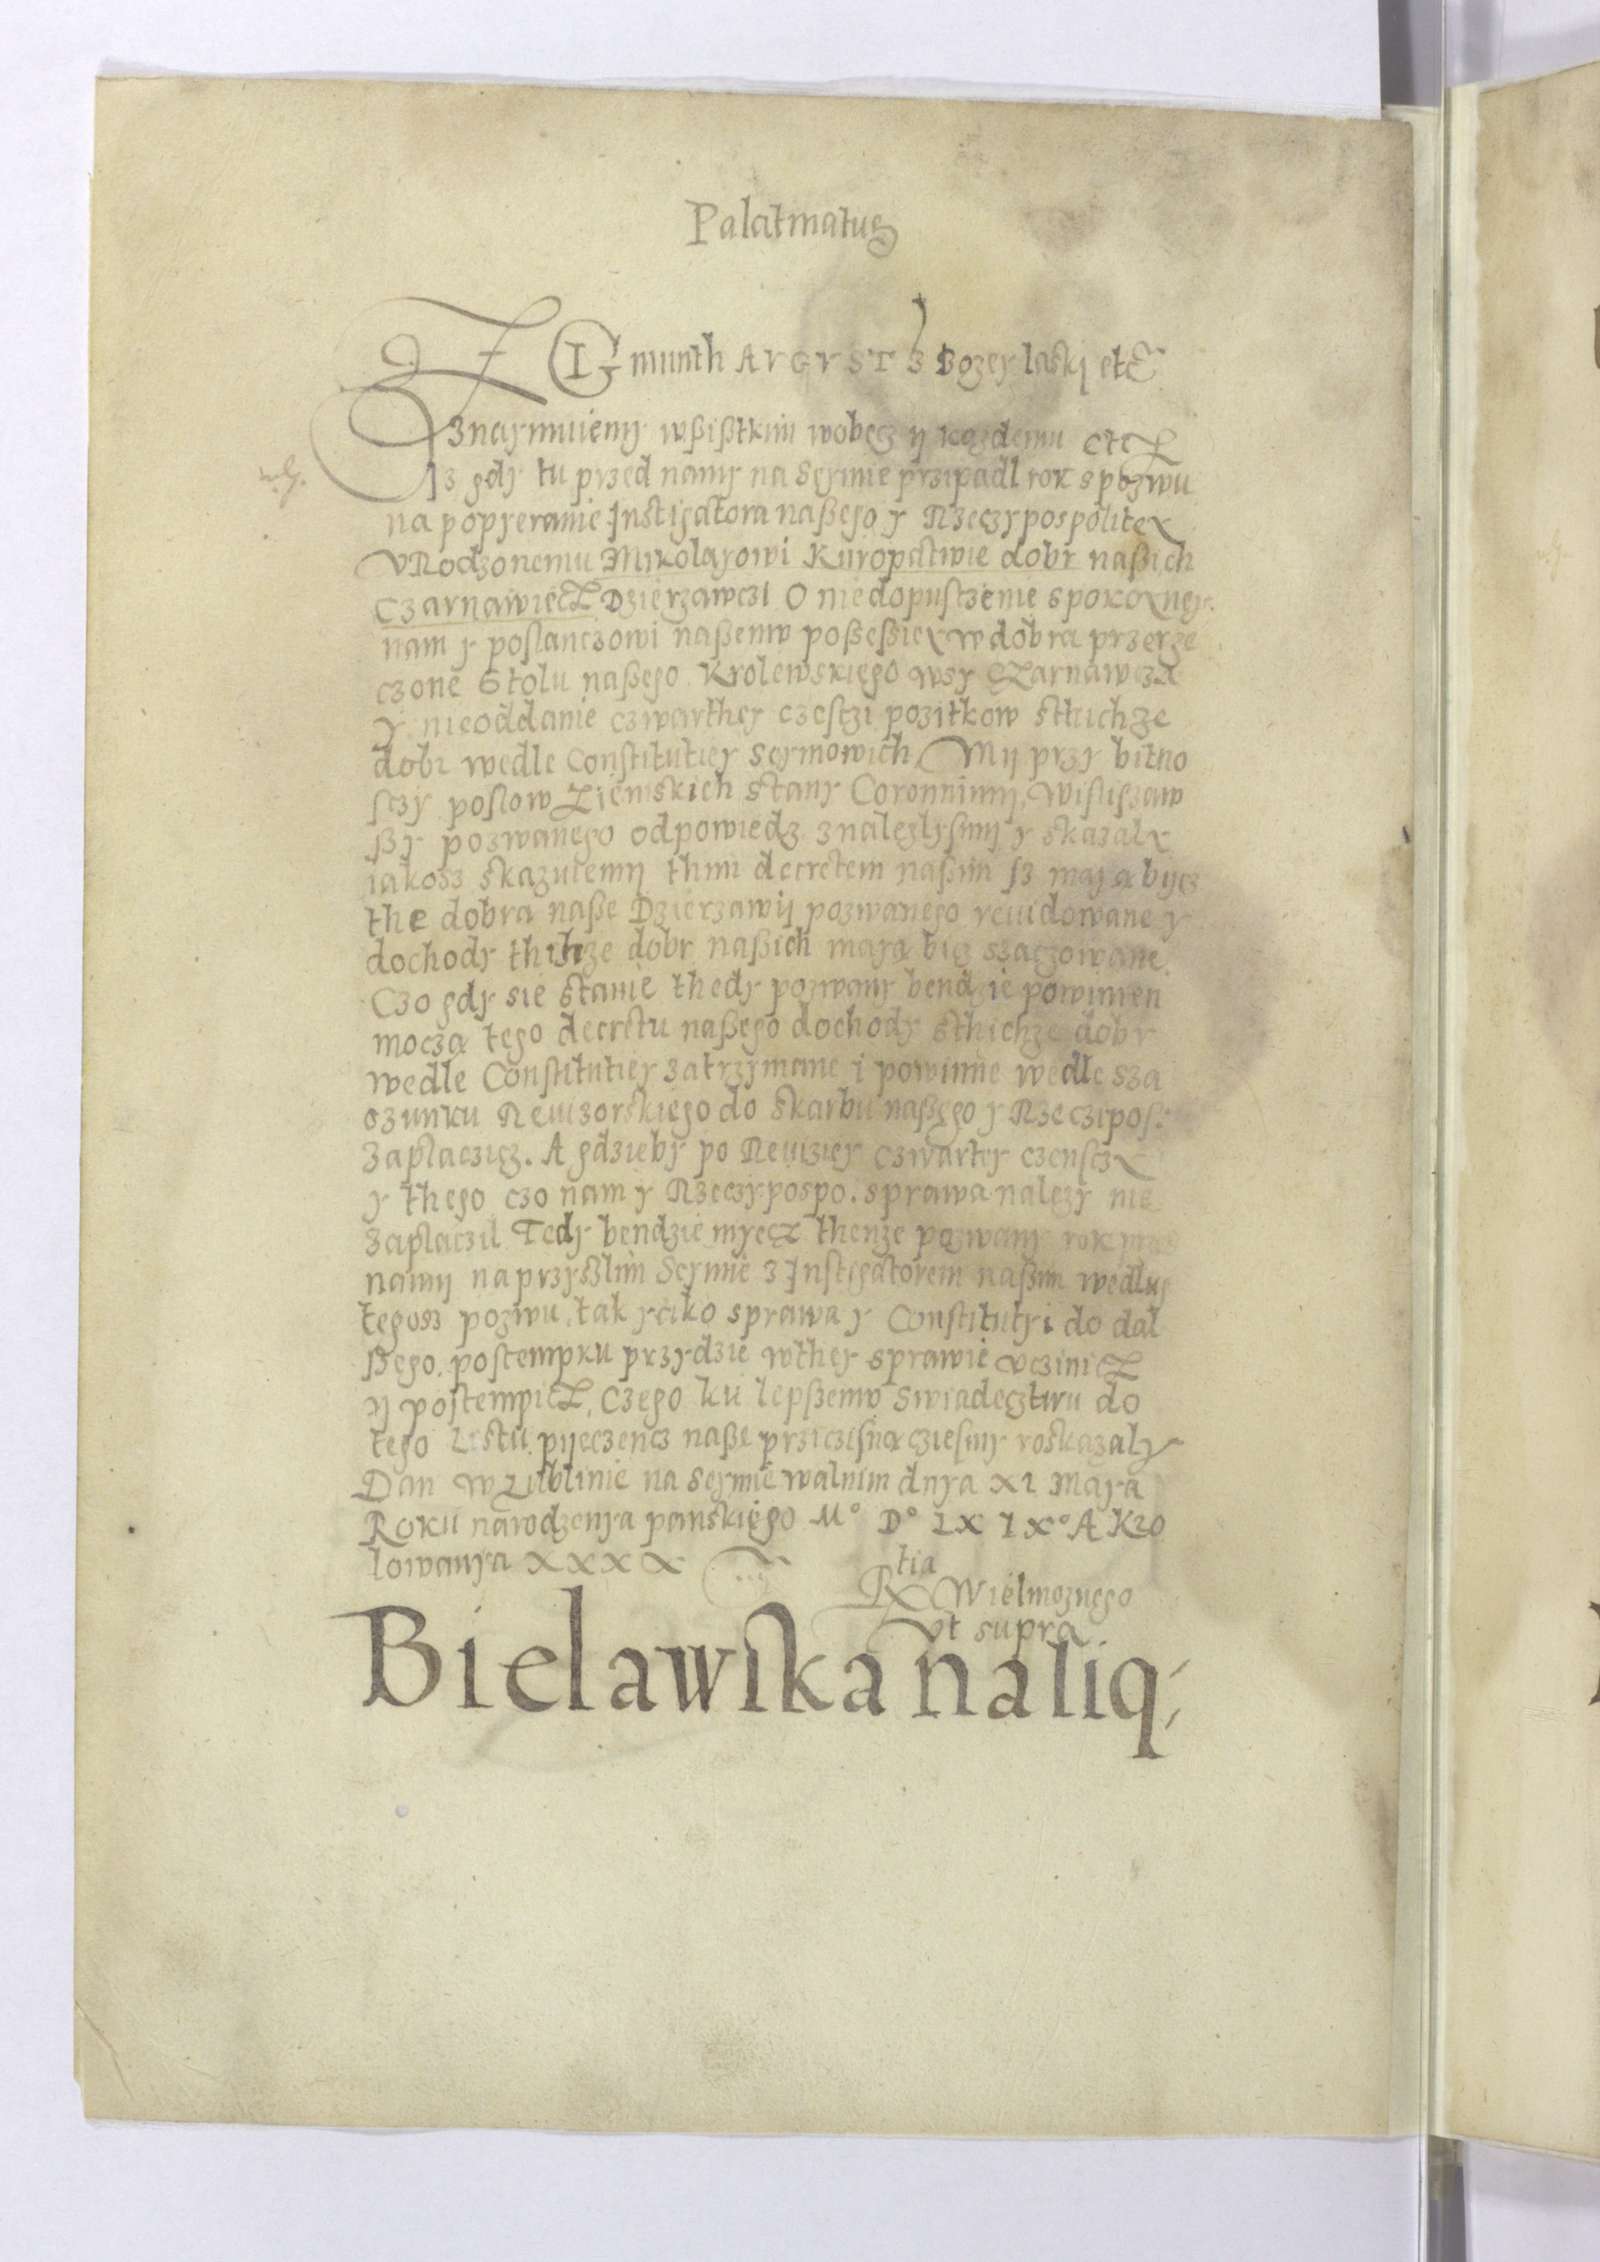 Palatinatus
ZIGmunth AVGVST z Bozey laski etc
Znaymuiemy wßißtkim wobecz y kazdemu etc
Iz gdy tu przed namy na Seymie przipadl rok s pozwu
na popyeranie Instigatora naßego y Rzeczypospolitey
vRodzonemu Mikolayowi Kuropatwie dobr naßich
Czarnawiecz Dzierzawczi O niedopusczenie spokoyney
nam y poslanczowi naßemv poßeßiey w dobra przerze
czone Stolu naßego Krolewskiego wsy Czarnawcza
y nieoddanie czwarthey czesczi pozitkow stuchze
dobr wedle Constitutiey Seymowich, My przy bitno
sczy poslow Ziemskich stany Coronnimy, wisliszaw
ßy pozwanego odpowiedz znalezlysmy y skazaly
iakosz skazuiemy thim decretem naßim Iz maya bycz
the dobra naße Dzierzawy pozwanego rewidowane y
dochody thihze dobr naßich maya bicz szaczowane
Czo gdy sie stanie thedy pozwany bendzie powinien
mocza tego decretu naßego dochody sthichze dobr
wedle Constitutiey zatrzymane i powinne wedle sza
czunku Rewizorskiego do skarbu naßego y Rzeczipos:
Zaplaczicz. A gdzieby po Rewiziey czwartey czensczy
y thego czo nam y Rzeczypospo. sprawa nalezy nie
Zaplaczil Tedy bendzie myecz thenze pozwany rok
namy na przyßlim Seymie z Instigatorem naßim wedlug
tegosz pozwu, tak yako sprawa y Constituty i do dal
ßego postempku przydzie wthey sprawie vczinicz
y postempicz, Czego ku lepßemv swiadecztwu do
tego Listu pyeczencz naße przicisnaczesmy roskazaly
Dan w Lublinie na Seymie walnim dnya XI Maya
Roku narodzenya panskiego M° D° LX IX° A Kro
lowanya XXXX
Rtia Wielmoznego
vt supra
Bielawska naliq: